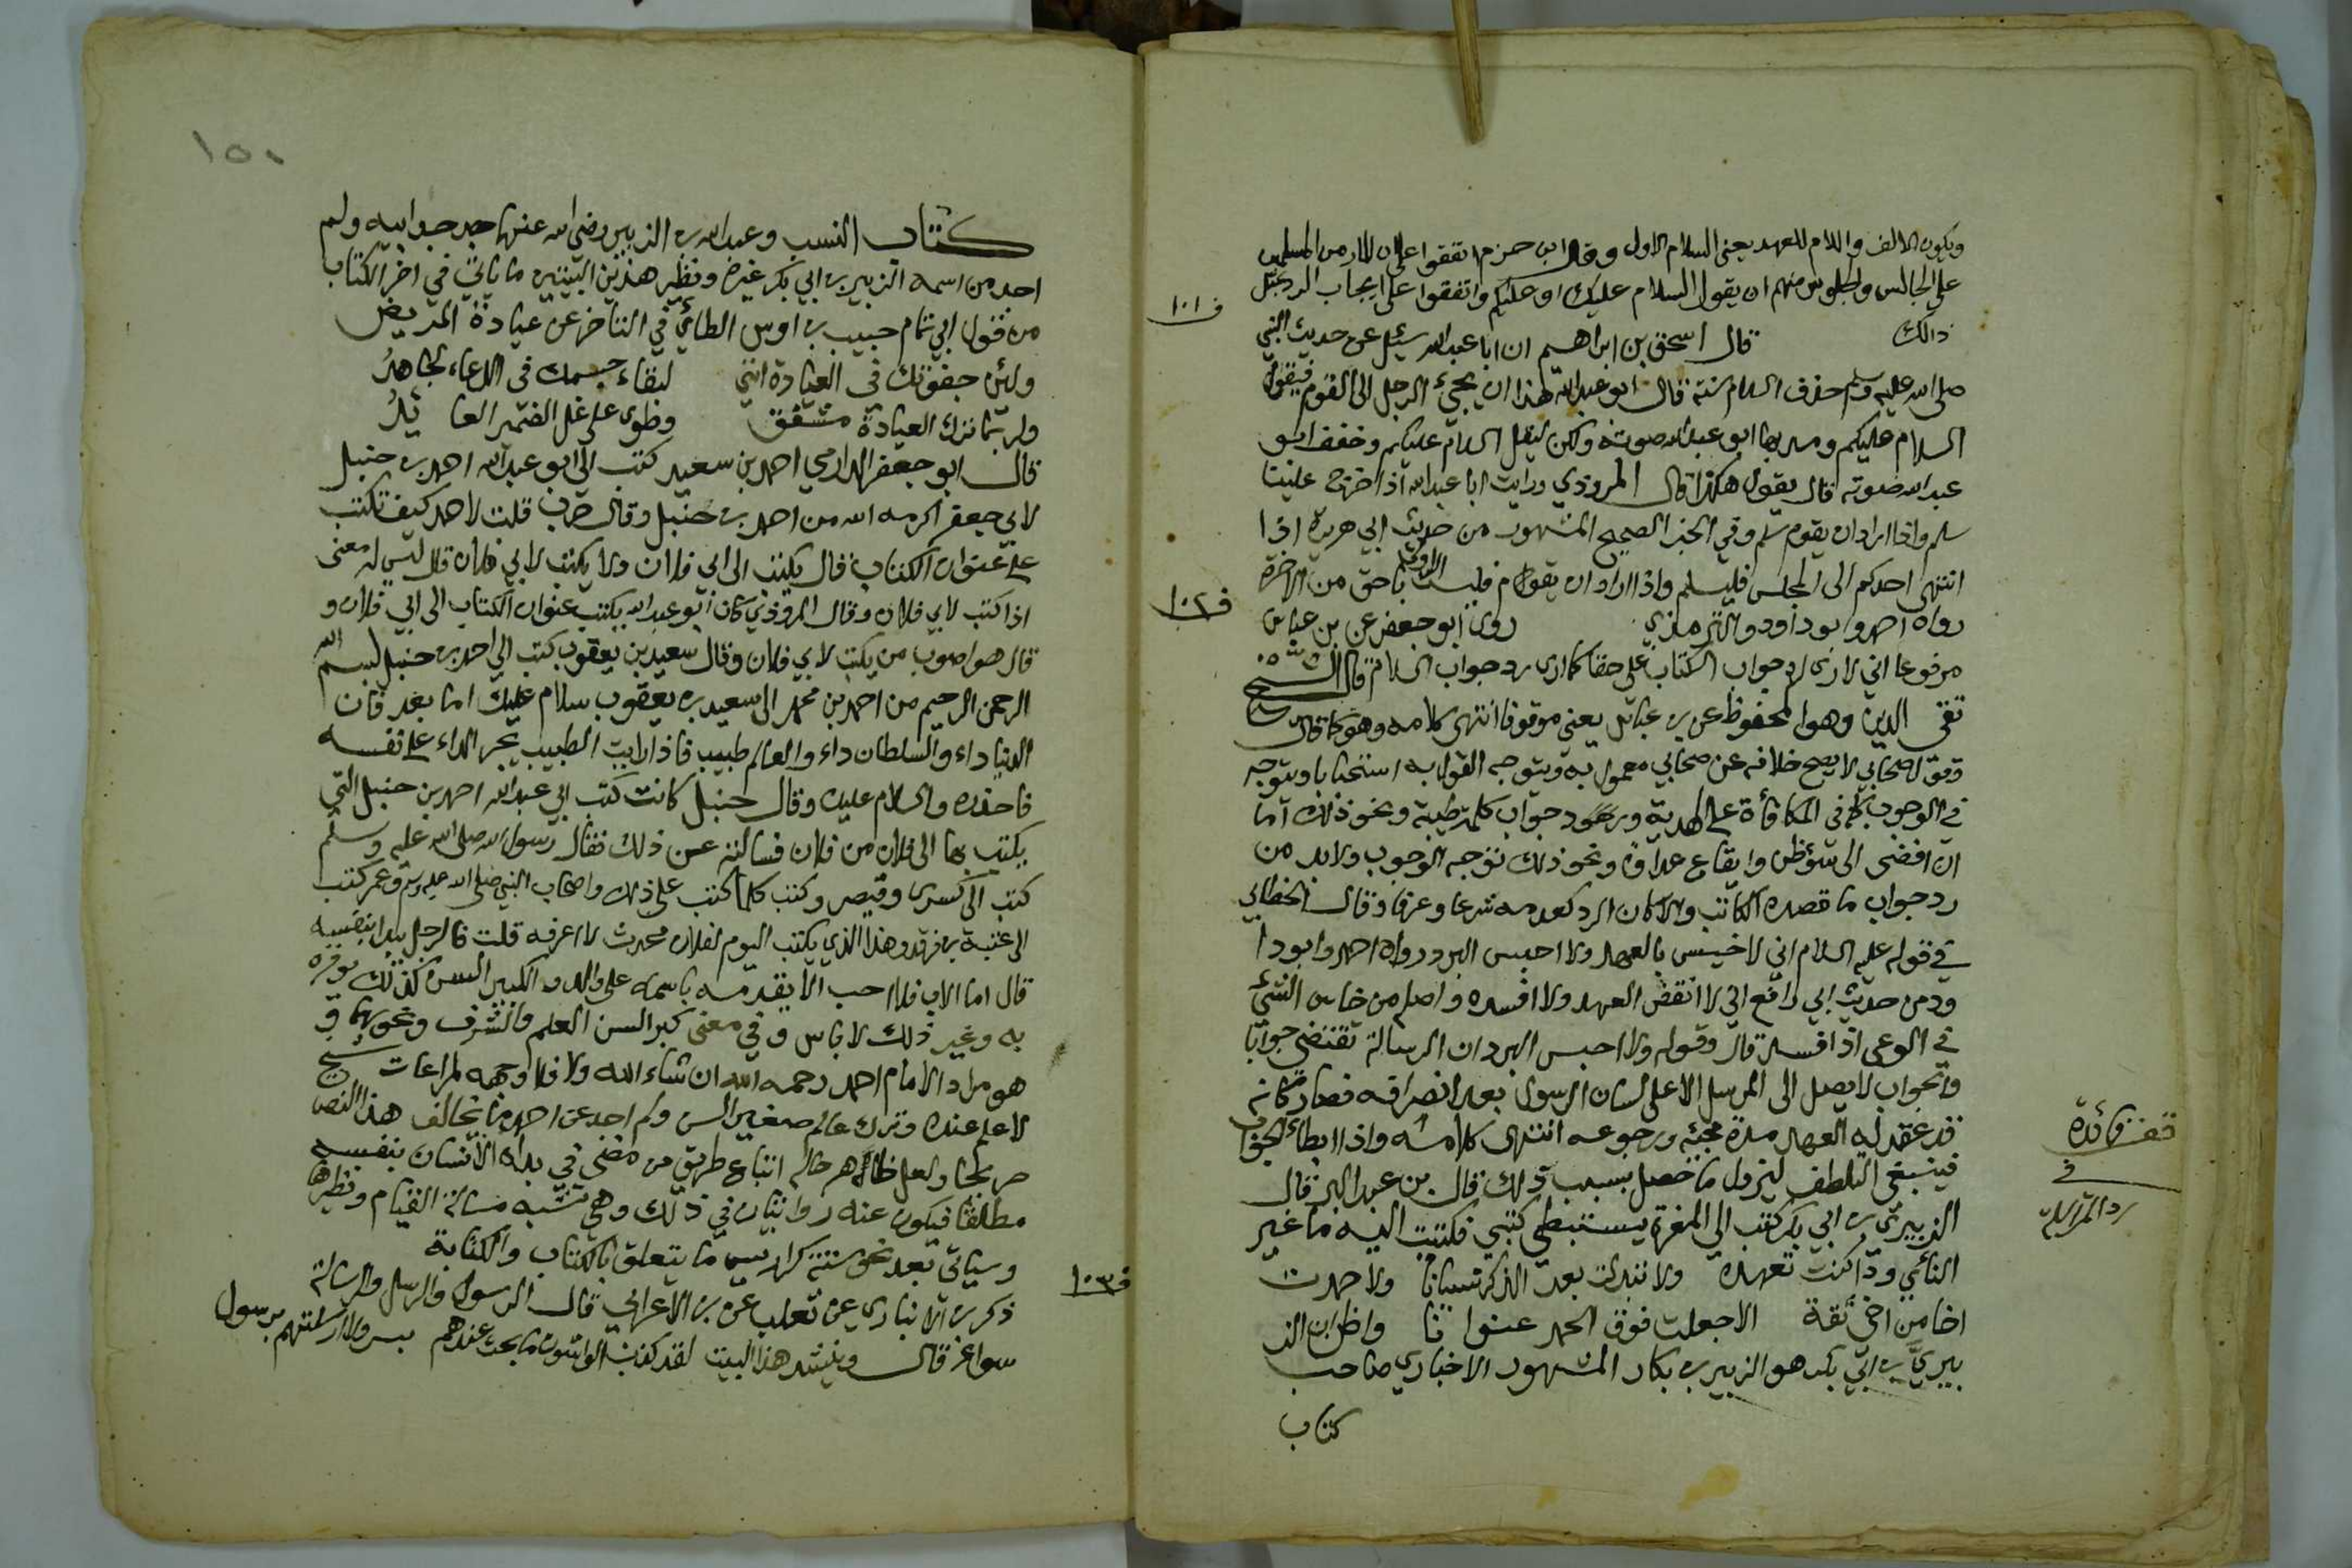 ويكون الالف واللام للعهد يعني السلام الاول وقال ابن حزم اتفقوا على ان المار من المسلمين
على الجالس والجلوس منهم ان يقول السلام عليك او عليكم واتفقوا على ايجاب الرد بمثل
ف ١٠١
ذالك قال اسحق بن ابراهيم ان ابا عبد الله سئل عن حديث النبي
صلى الله عليه وسلم حذف السلام سنة قال ابو عبد الله هذا ان يجيء الرجل الى القوم فيقول
السلام عليكم ومد بها ابو عبد الله صوته ولكن ليقل السلام عليكم وخفف ابو
عبد الله صوته قال يقول هكذا قال المروذي ورايت ابا عبد الله اذا خرج علينا
سلم واذا اراد ان يقوم سلم وفي الخبر الصحيح المشهور من حديث ابي هريرة اذا
انتهى احدكم الى المجلس فليسلم واذا اراد ان يقوم فليسلم باحق من الاخرة
ف ١٠٢
رواه احمد وابو داود والترمذي روى ابو جعفر عن بن عباس
مرفوعا اني لارى لرد جواب الكتاب علي حقا كما ارى رد جواب السلام قال الشيخ
تقي الدين وهو المحفوظ عن بن عباس يعني موقوفا انتهى كلامه وهو كما قال
وقول صحابي لا يصح خلافه عن صحابي معمول به ويتوجه القول به استحبابا ويتوجه
في الوجوب كما في المكافأة على الهدية ورد جواب كلمة طيبة ونحو ذلك اما
ان افضى الى سوء ظن وايقاع عداوة ونحو ذلك توجه الوجوب ولا بد من
رد جواب ما قصده الكاتب والا كان الرد كعدمه شرعا وعرفا وقال الخطابي
في قوله عليه السلام اني لا اخيس بالعهد ولا احبس البرد رواه احمد وابو دا
ود من حديث ابي رافع اي لا انقض العهد ولا افسده واصله من خاس الشيئ
في الوعى اذا فسد قال وقوله ولا احبس البرد ان الرسالة تقتضي جوابا
والجواب لا يصل الى المرسل الا على لسان الرسول بعد انصرافه فصار كانه
قد عقد له العهد مدة مجيئه ورجوعه انتهى كلامه واذا ابطاء الجواب
فينبغي التلطف ليزول ما حصل بسبب ذلك قال بن عبد البر قال
الزبيري بن ابي بكر كتب الي المغيرة يستبطي كتبي فكتبت اليه ما غير
النائي ودا كنت تعهده ولا تبدلت بعد الذكر نسيانا ولا حمدت
اخا من اخي ثقة الا جعلت فوق الحمد عنوانا واظن ان الز
بيريّ بن ابي بكر هو الزبير بن بكار المشهور الاخباري صاحب
كتاب
قف فائدة
في
رد المراسلة
١٥٠
كتاب النسب وعبد الله بن الزبير رضي الله عنهما جد جد ابيه ولم
احد من اسمه الزبير بن ابي بكر غيره ونظير هذين البيتين ما ياتي في اخر الكتاب
من قول ابي تمام حبيب بن اوس الطائي في التاخر عن عيادة المريض
ولئن جفوتك في العيادة انني لبقاء جسمك في الدعاء لجاهدُ
ولربما ترك العيادة مشفق وطوى على غل الضمير العائدُ
قال ابو جعفر الدارمي احمد بن سعيد كتب الي ابو عبد الله احمد بن حنبل
لابي جعفر اكرمه الله من احمد بن حنبل وقال حرب قلت لاحمد كيف تكتب
على عنوان الكتاب قال يكتب الى ابي فلان ولا يكتب لابي فلان قال ليس له معنى
اذا كتب لابي فلان وقال المروذي كان ابو عبد الله يكتب عنوان الكتاب الى ابي فلان و
قال هو اصوب من يكتب لابي فلان وقال سعيد بن يعقوب كتب الي احمد بن حنبل بسم الله
الرحمن الرحيم من احمد بن محمد الى سعيد بن يعقوب سلام عليك اما بعد فان
الدنيا داء والسلطان داء والعالم طبيب فاذا رايت الطبيب يجر الداء على نفسه
فاحذره والسلام عليك وقال حنبل كانت كتب ابي عبد الله احمد بن حنبل التي
يكتب بها الى فلان من فلان فسالته عن ذلك فقال رسول الله صلى الله عليه وسلم
كتب الى كسرى وقيصر وكتب كلما كتب على ذلك واصحاب النبي صلى الله عليه وسلم وعمر كتب
الى عتبة بن فرقد وهذا الذي يكتب اليوم لفلان محدث لا اعرفه قلت فالرجل يبدا بنفسه
قال اما الاب فلا احب الا يقدمه باسمه على والده والكبير السن كذلك يوقره
به وغير ذلك لا باس وفي معنى كبر السن العلم والشرف ونحوهما و
هو مراد الامام احمد رحمه الله ان شاء الله ولا فلا وجه لمراعات شيخ
لا علم عنده وترك عالم صغير السن ولم احد عن احمد ما يخالف هذا النص
صريحا ولعل ظاهر حاله اتباع طريق من مضى في بداة الانسان بنفسه
مطلقا فيكون عنه روايتان في ذلك وهي تشبه مسالة القيام ونظيرها
وسياتي بعد نحو ستة كراريس ما يتعلق بالكتاب والكتابة
ف ١٠٣
ذكر بن الانباري عن ثعلب عن بن الاعرابي قال الرسول والرسل والرسالة
سواء قال وينشد هذا البيت لقد كذب الواشون ما بحت عندهم بسر ولا ارسلتهم برسول